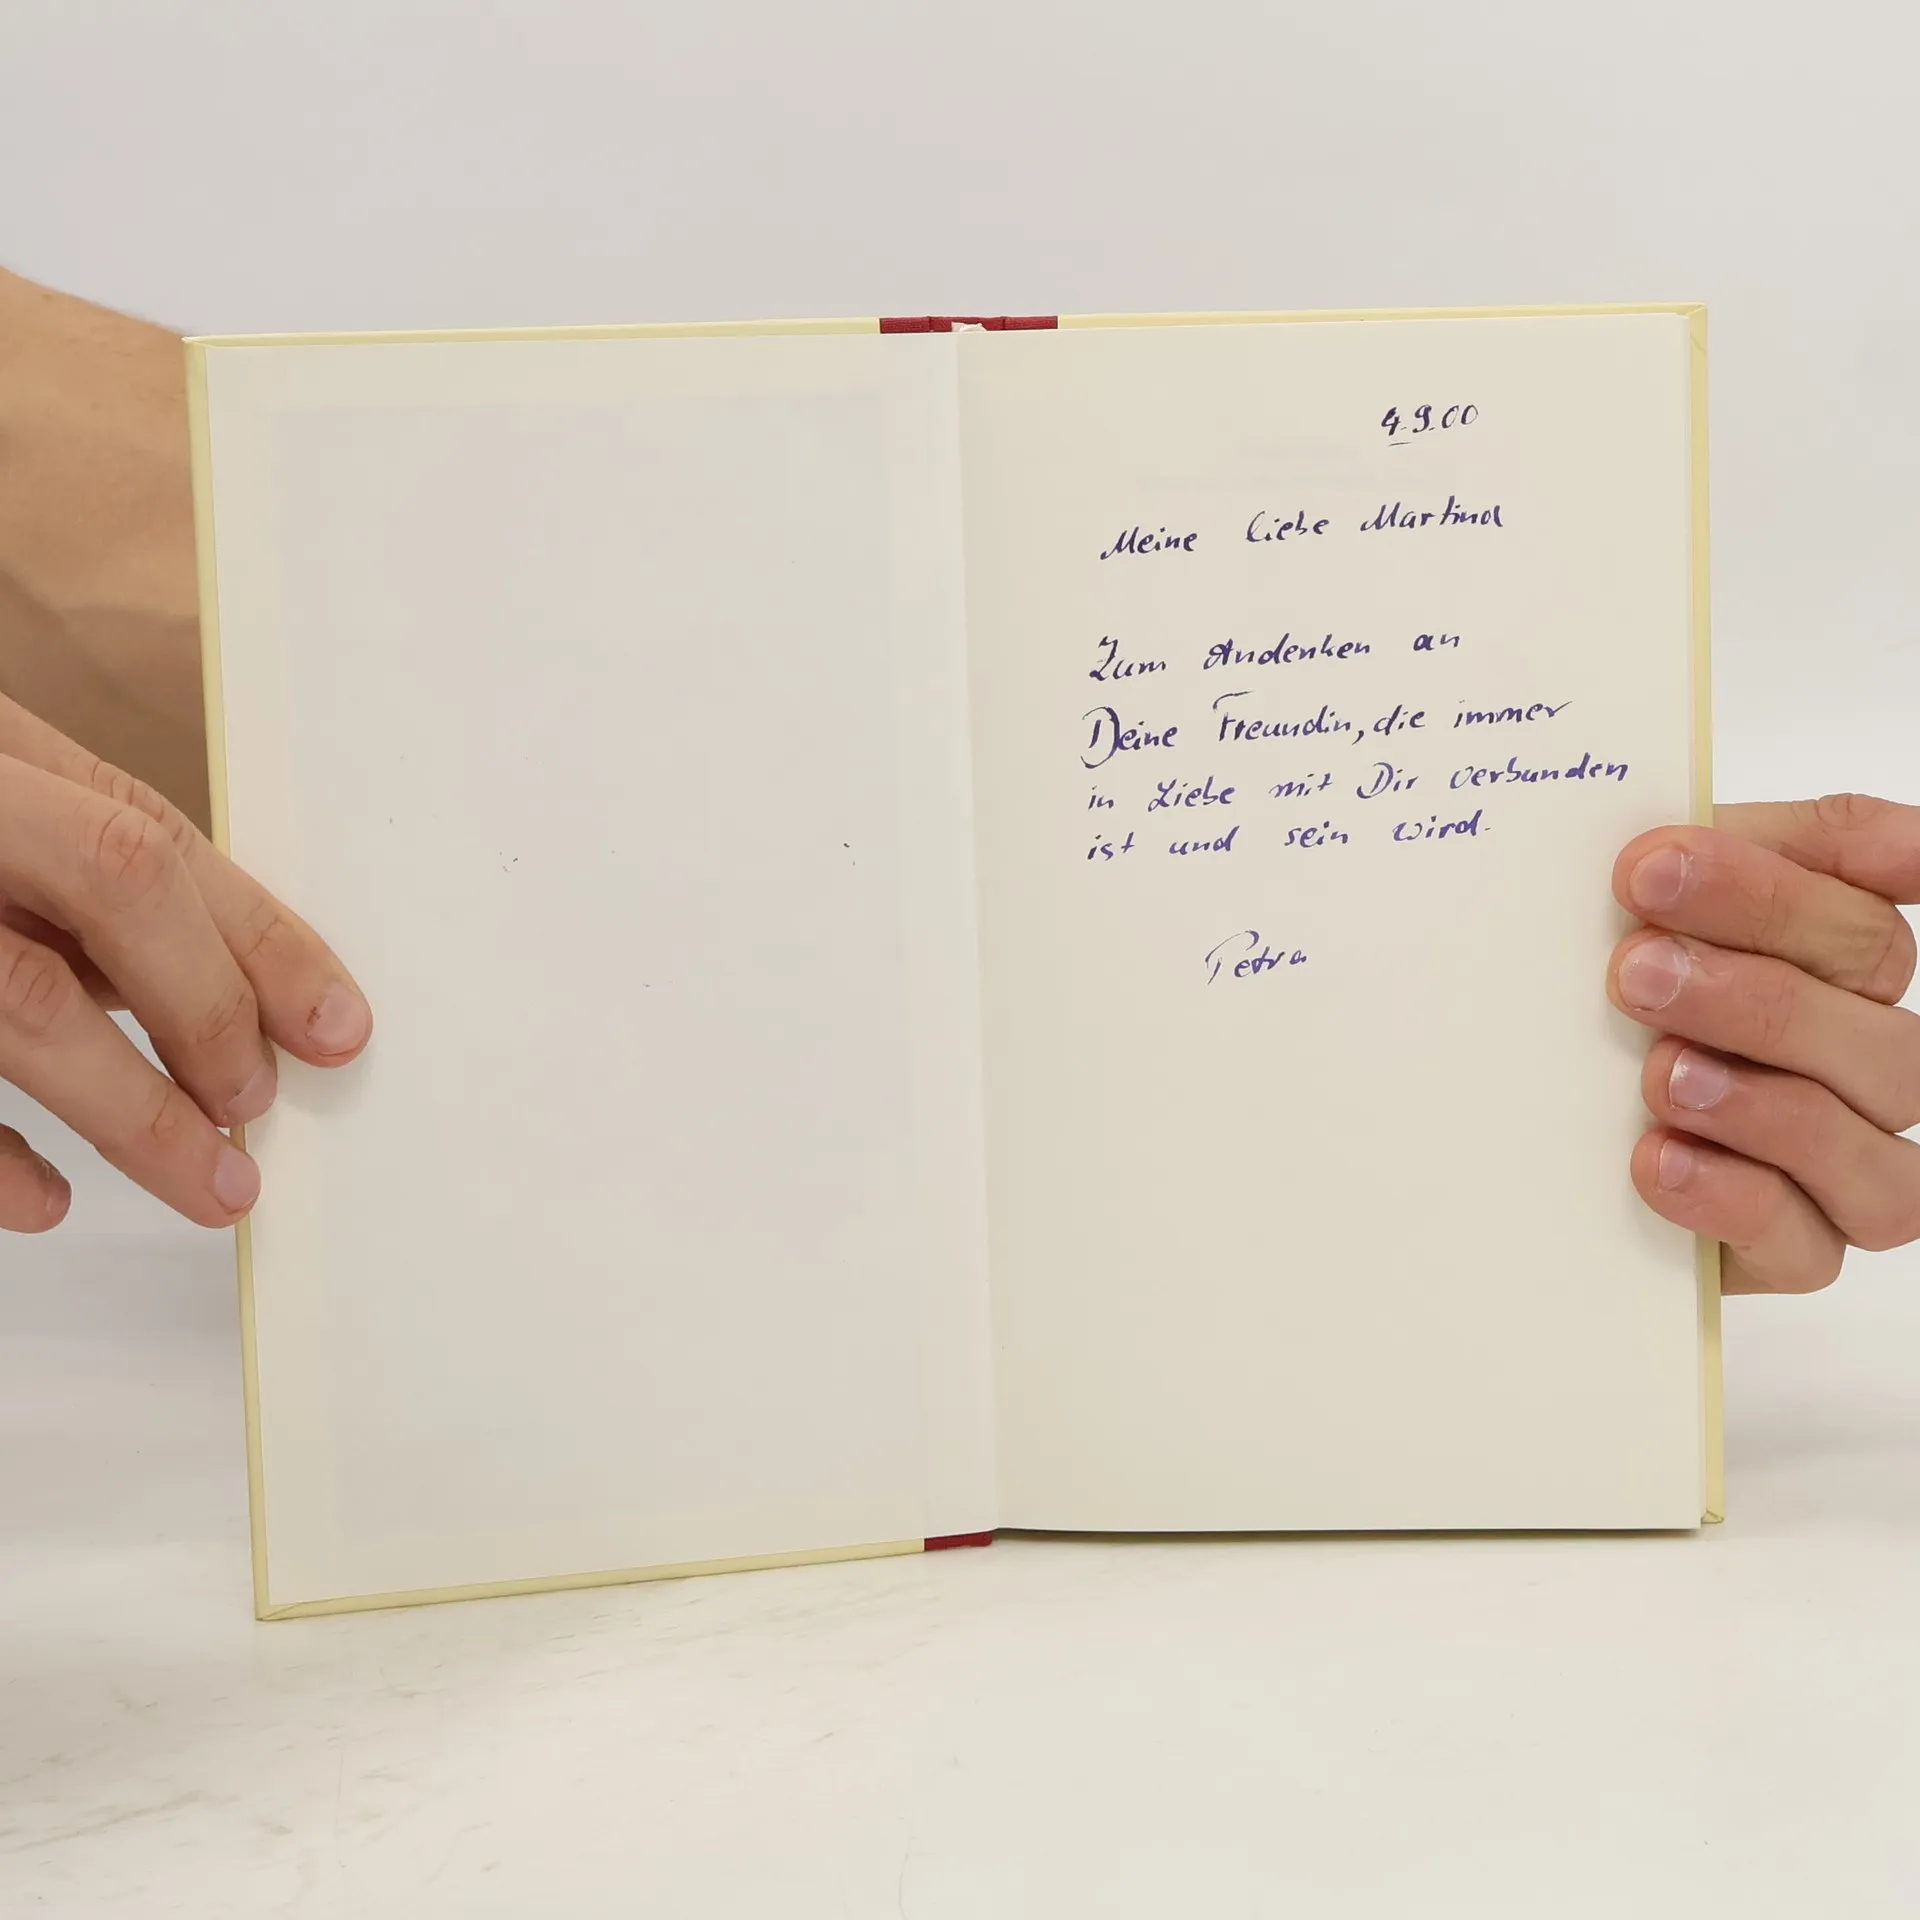 4.9.00
Meine liebe Martina
Zum Andenken an
Deine Freundin, die immer
in Liebe mit Dir verbunden
ist und sein wird.
Petra